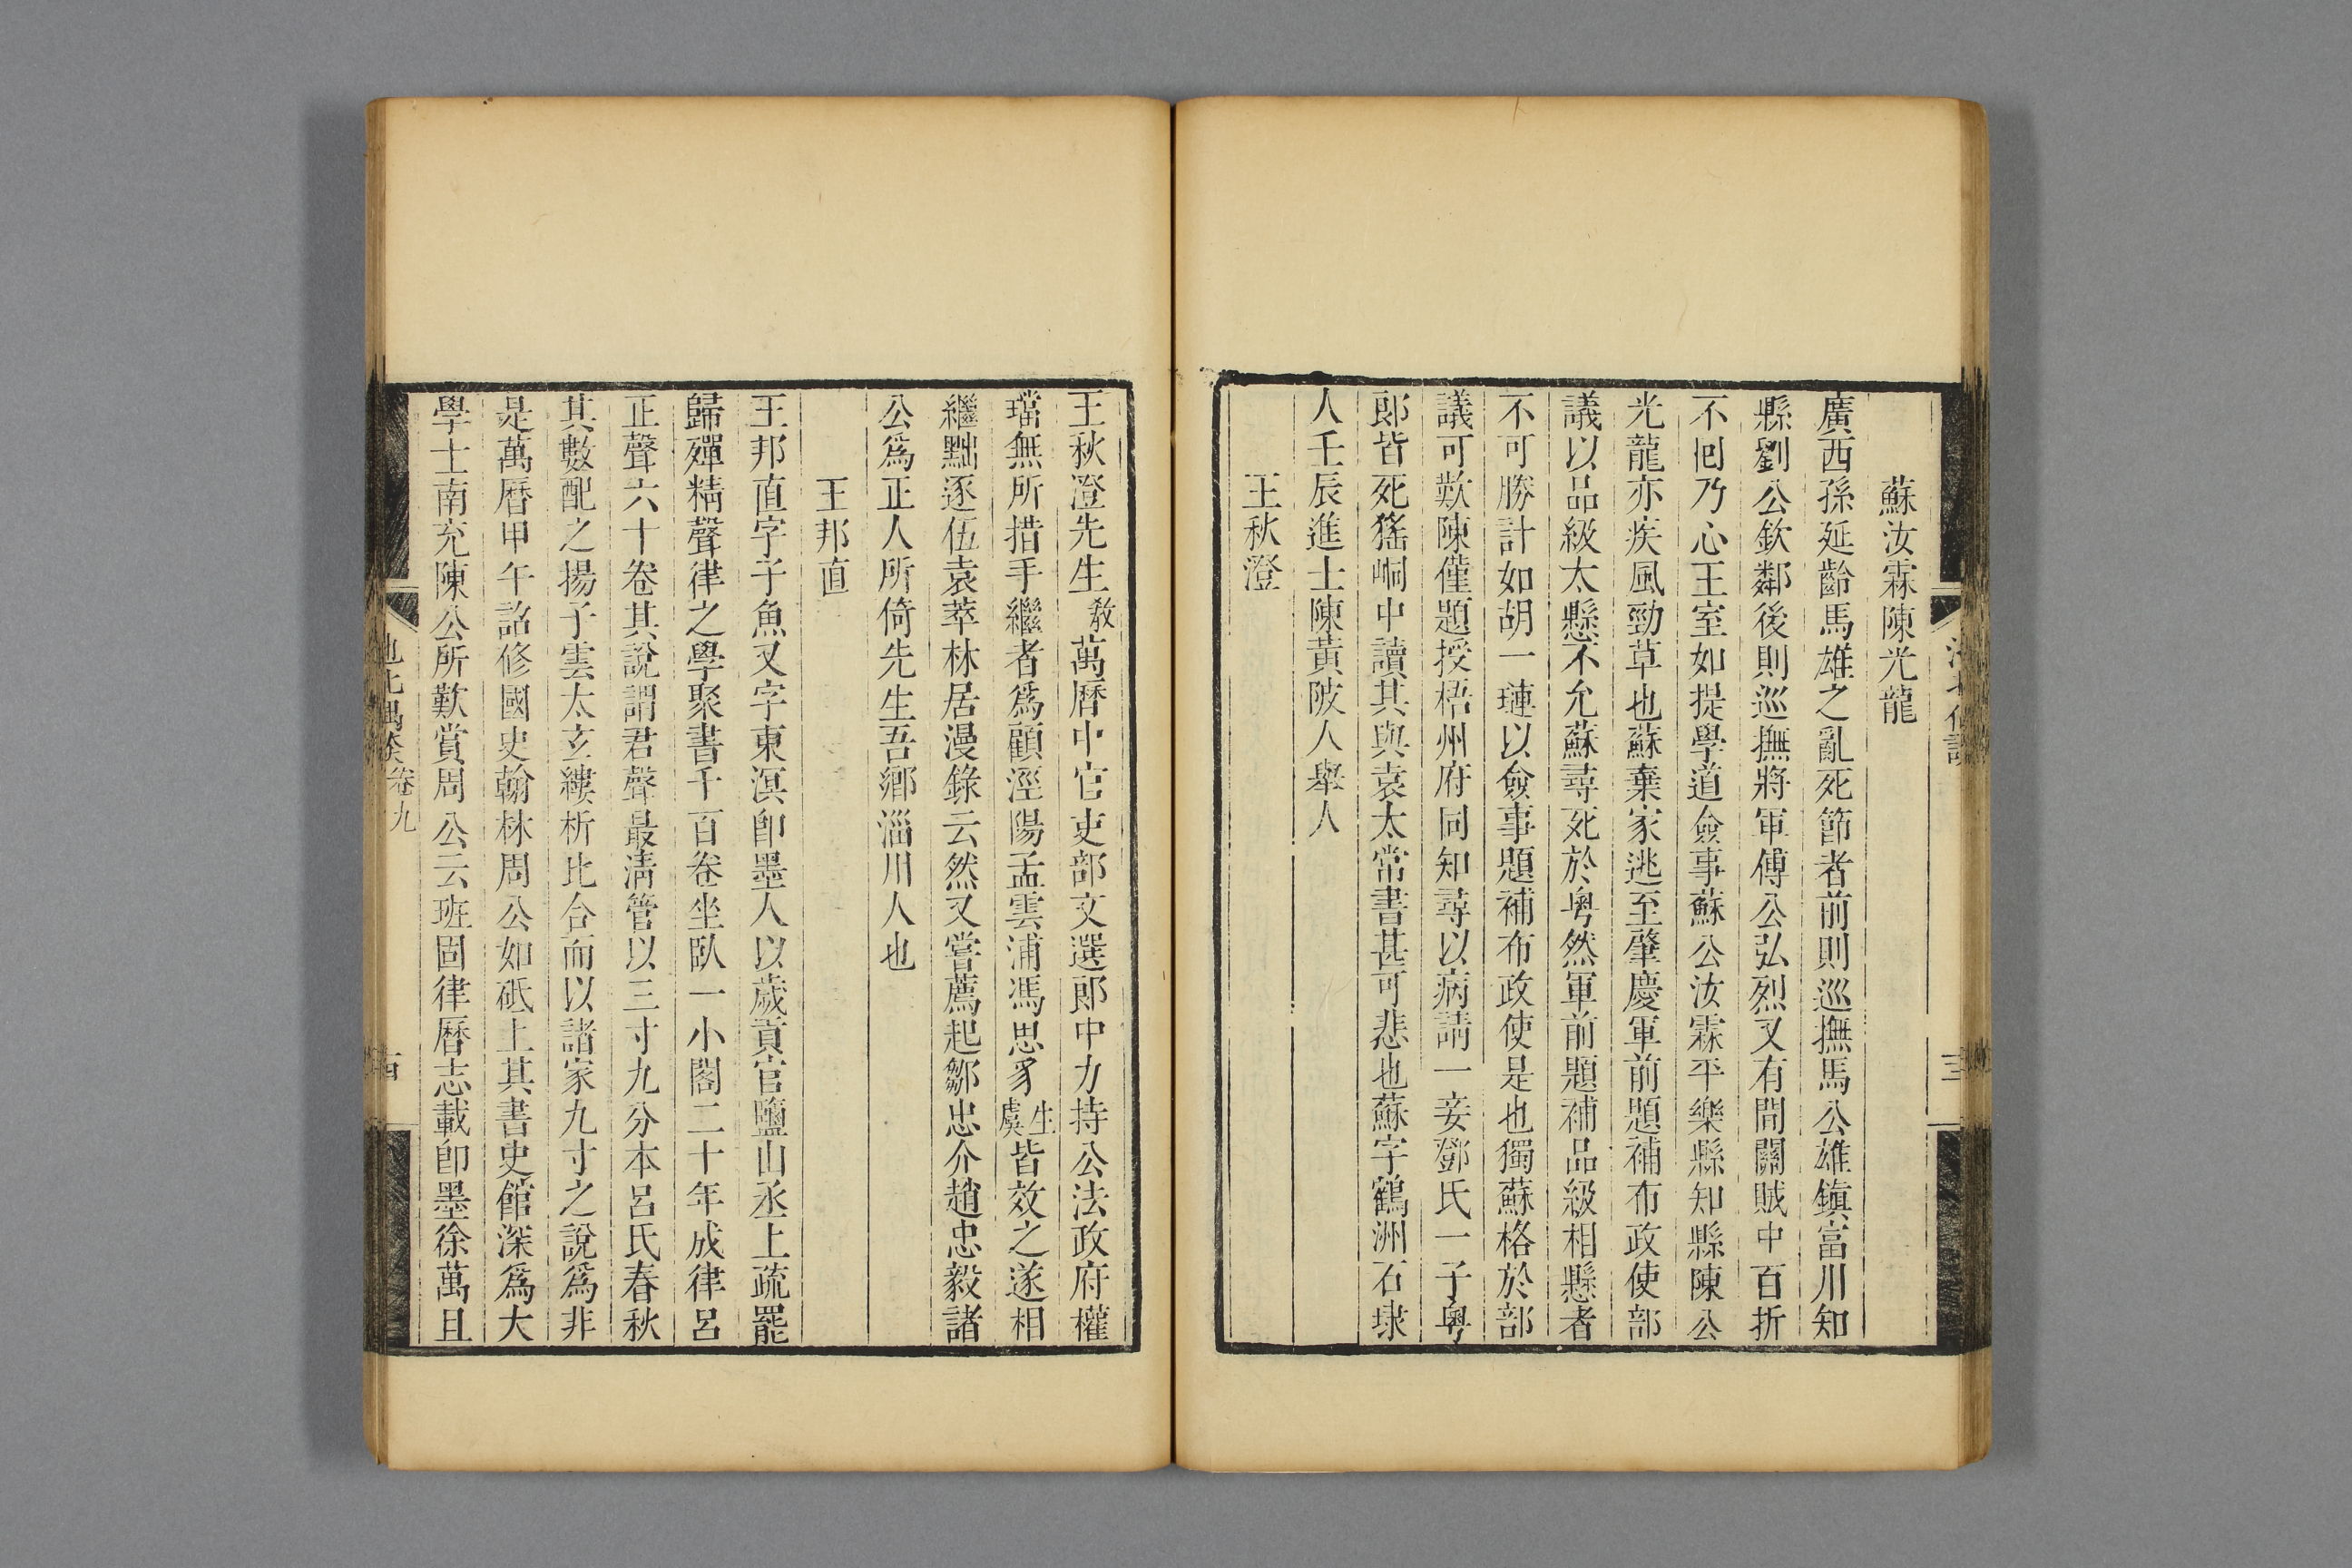 蘇汝霖陳光龍
廣西孫延齡馬雄之亂死節者前則巡撫馬公雄鎮富川知
縣劉公欽鄰後則巡撫將軍傅公弘烈又有間關賊中百折
不囘乃心王室如提學道僉事蘇公汝霖平樂縣知縣陳公
光龍亦疾風勁草也蘇棄家逃至肇慶軍前題補布政使部
議以品級太懸不允蘇尋死於粤然軍前題補品級相懸者
不可勝計如胡一璉以僉事題補布政使是也獨蘇格於部
議可歎陳僅題授梧州府同知尋以病請一妾鄧氏一子粤
郞皆死猺峒中讀其與袁太常書甚可悲也蘇字鶴洲石埭
人壬辰進士陳黃陂人舉人
王秋澄
王秋澄先生敎萬曆中官吏部文選郞中力持公法政府權
璫無所措手繼者爲顧涇陽孟雲浦馮思豸生虞皆效之遂相
繼黜逐伍袁萃林居漫錄云然又嘗薦起鄒忠介趙忠毅諸
公爲正人所倚先生吾鄕淄川人也
王邦直
王邦直字子魚又字東溟卽墨人以歲貢官鹽山丞上疏罷
歸殫精聲律之學聚書千百卷坐臥一小閣二十年成律呂
正聲六十卷其說謂君聲最淸管以三寸九分本呂氏春秋
其數配之揚子雲太玄縷析比合而以諸家九寸之說爲非
是萬曆甲午詔修國史翰林周公如砥上其書史館深爲大
學士南充陳公所歎賞周公云班固律曆志載卽墨徐萬且
卷九